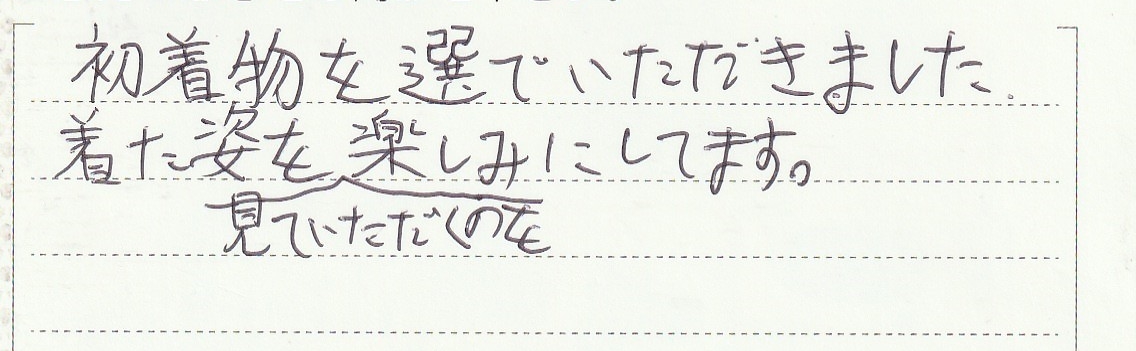 初着物を選でいただきました.
着た姿を楽しみにしてます。
見ていただくのを